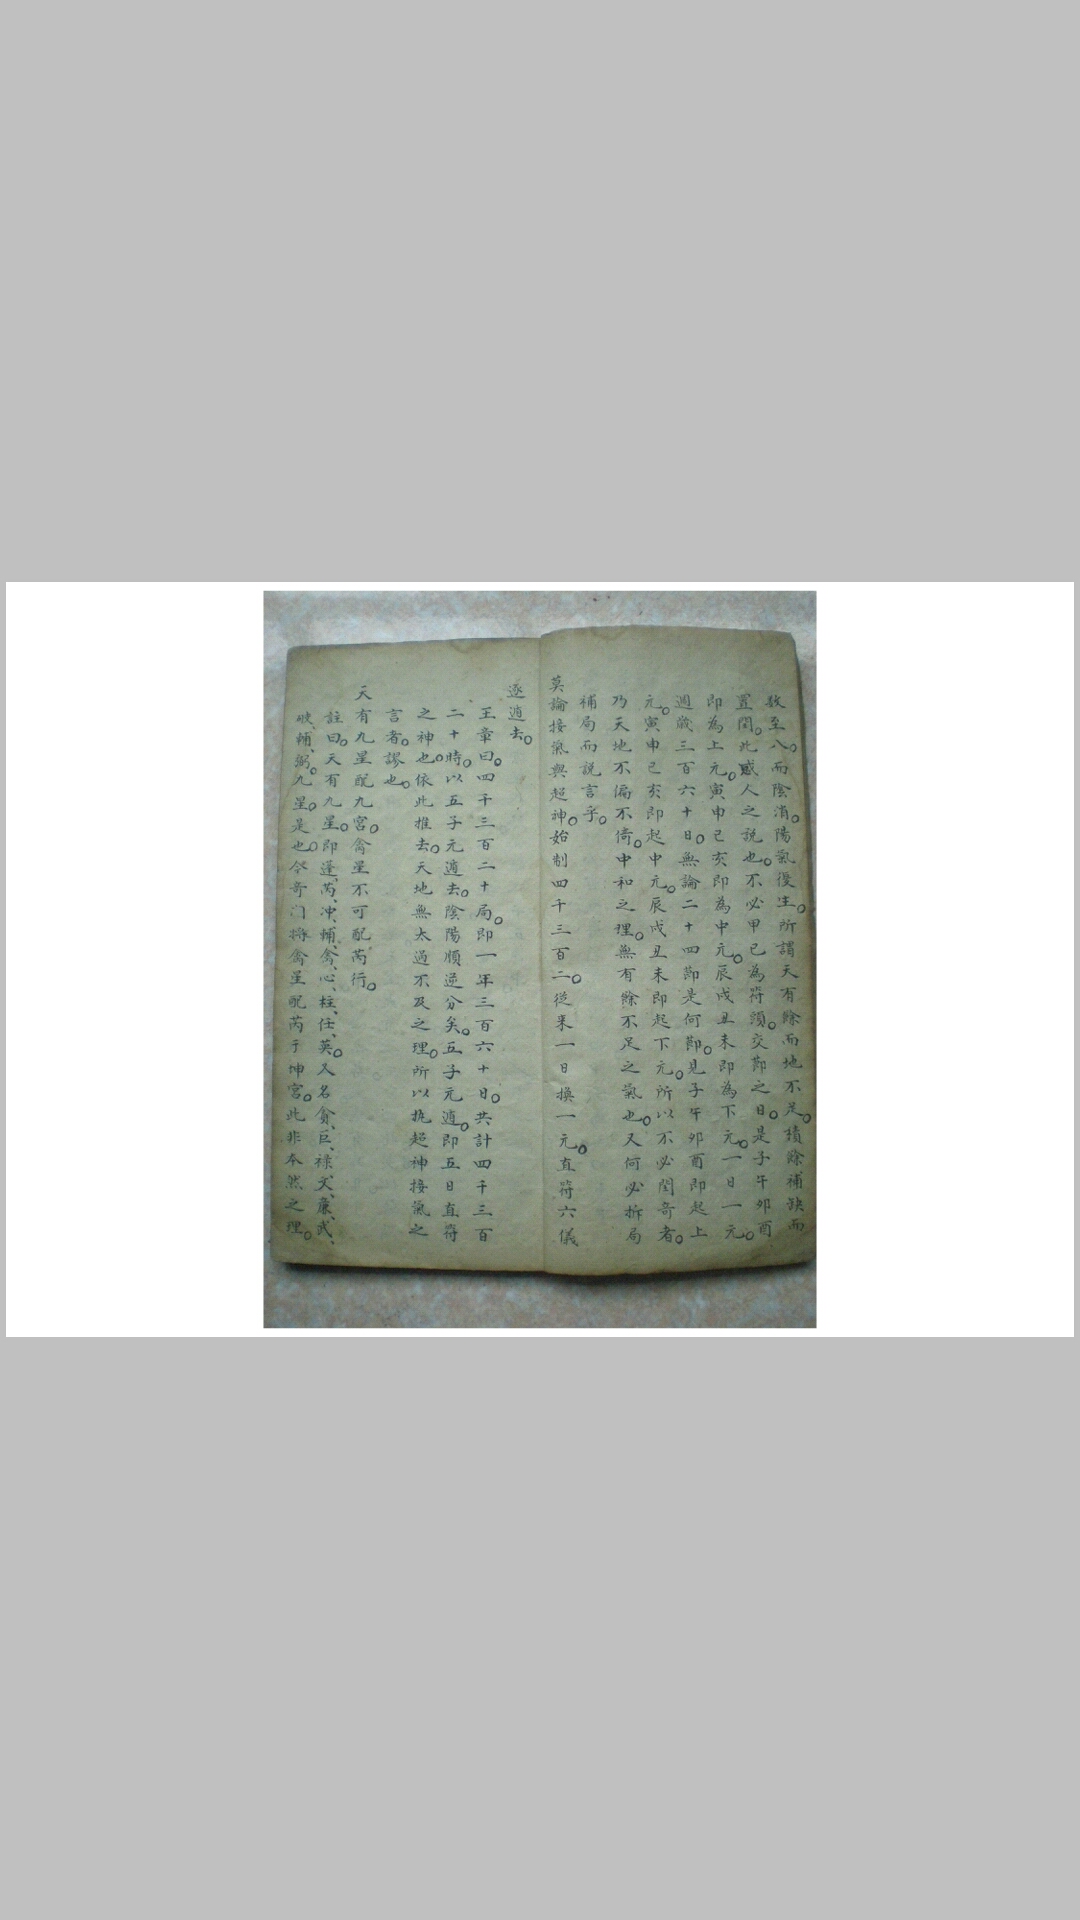 數至八。而陰消。陽氣復生。所謂天有餘而地不足。積餘補缺而
置閏。此惑人之説也。不必甲己為符頭。交節之日。是子午卯酉
即為上元。寅申己亥即為中元。辰戌丑未即為下元。一日一元。
週歲三百六十日。無論二十四節是何節。見子午卯酉即起上
元。寅申己亥即起中元。辰戌丑未即起下元。所以不必閏奇者。
乃天地不偏不倚。中和之理。無有餘不足之氣也。又何必拆局
補局而説言乎。
莫論接氣與超神。始制四千三百二。從来一日換一元。直符六儀
逐遁去。
王章曰。四千三百二十局。即一年三百六十日。共計四千三百
二十時。以五子元遁去。陰陽順逆分矣。五子元遁。即五日直符
之神也。依此推去。天地無太過不及之理。所以執超神接氣之
言者。謬也。
天有九星配九宮。禽星不可配芮行。
註曰。天有九星。即蓬、芮、冲、輔、禽、心、柱、任、英。又名貪、巨、祿、文、廉、武、
破、輔、弼。九星。是也。今奇门將禽星配芮于坤宮。此非本然之理。